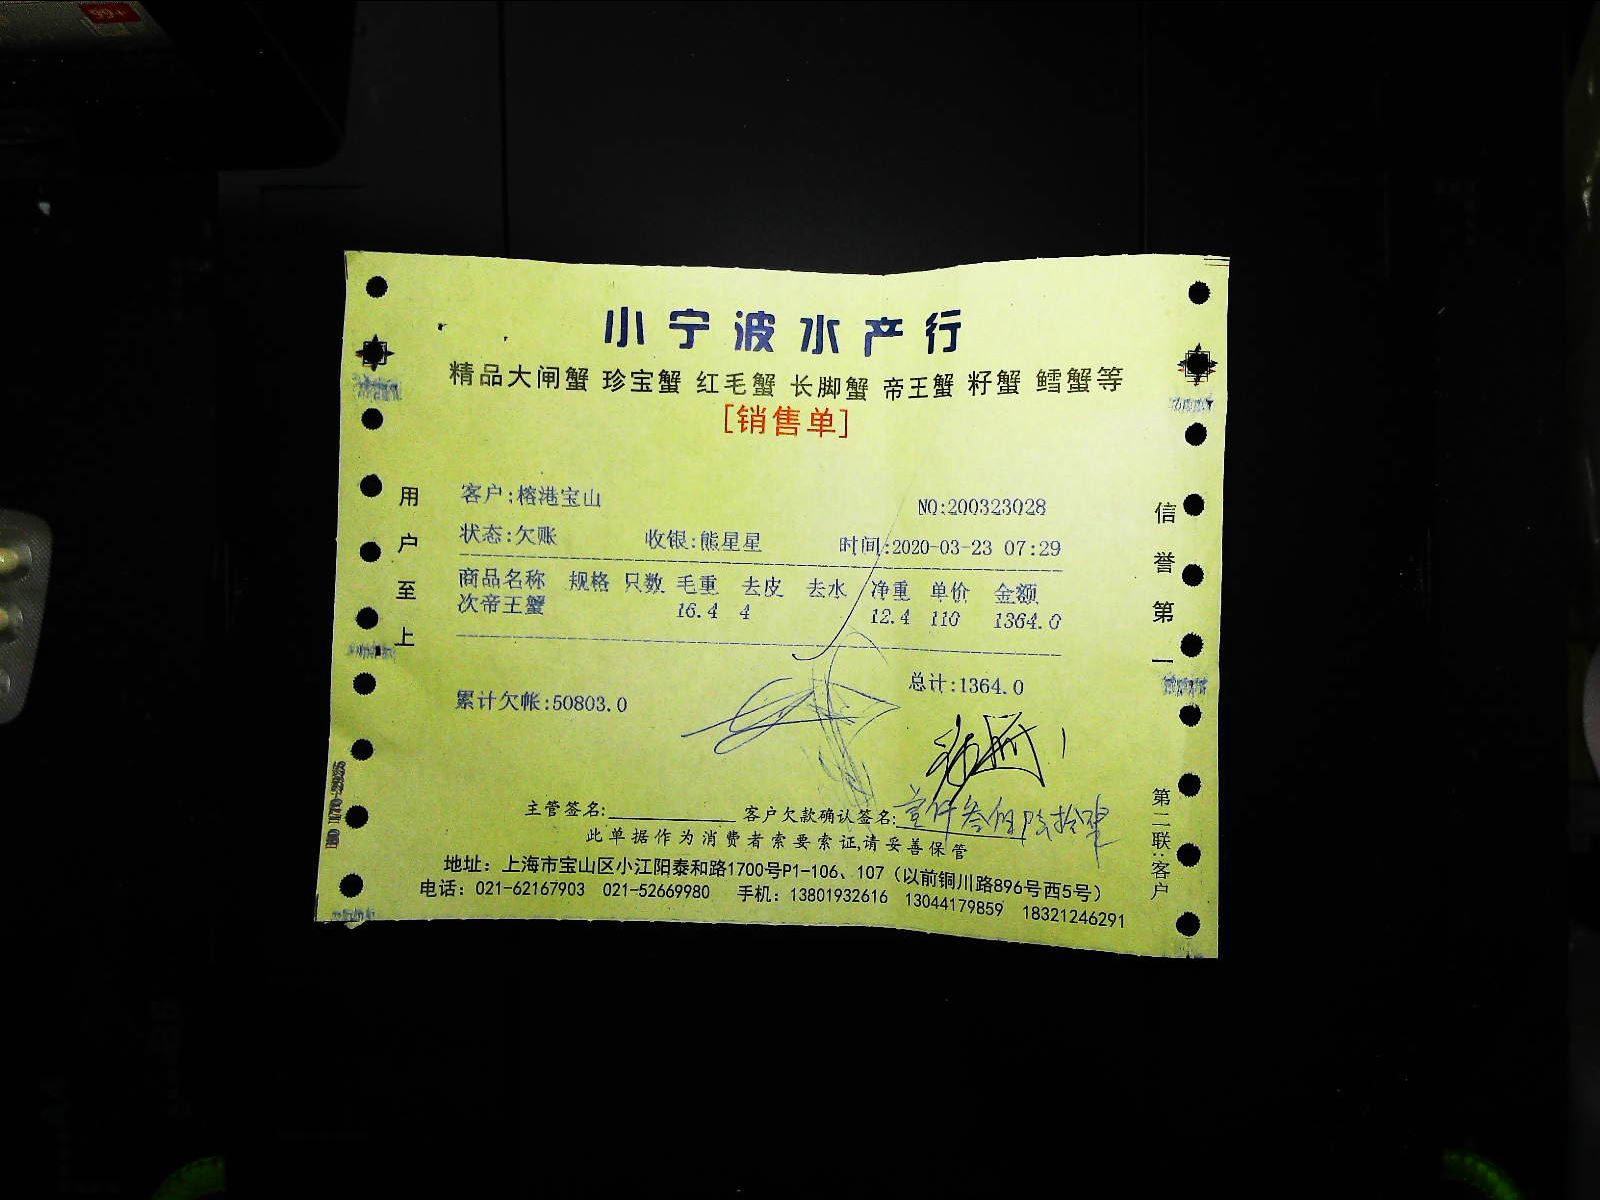 小宁波水产行
精品大闸蟹 珍宝蟹 红毛蟹 长脚蟹 帝王蟹 籽蟹 鳕蟹等
[销售单]
客户:榕港宝山
NO:200323028
状态:欠账 收银:熊星星 时间:2020-03-23 07:29
商品名称 规格 只数 毛重 去皮 去水 净重 单价 金额
次帝王蟹 16.4 4 12.4 110 1364.0
总计:1364.0
累计欠帐:50803.0
主管签名: 客户欠款确认签名: 壹仟叁佰陆拾肆
此单据作为消费者索要索证,请妥善保管
地址：上海市宝山区小江阳泰和路1700号P1-106、107（以前铜川路896号西5号）
电话：021-62167903 021-52669980 手机：13801932616 13044179859 18321246291
用户至上
信誉第一
第二联:客户
99+